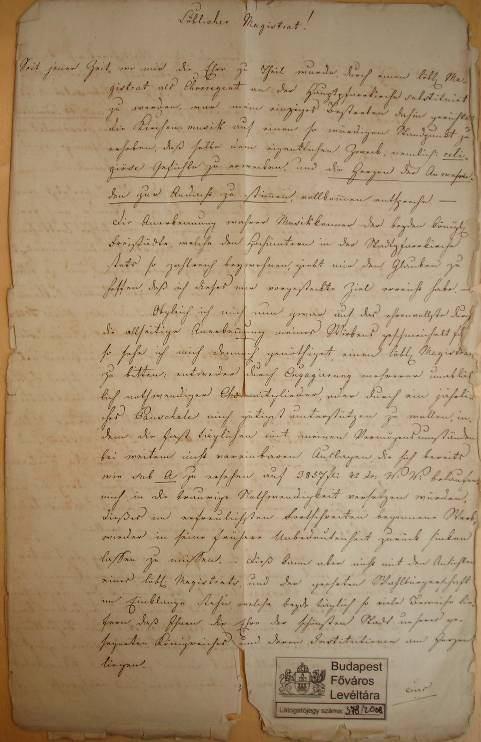 Löblicher Magistrat!
Seit jener Zeit, wo mir die Ehre zu Theil wurde, durch einen löbl. Ma-
gistrat als Chorregent an der Hauptpfarrkirche substituirt
zu werden, war mein einziges Bestreben dahin gerichtet
die Kirchenmusik auf einen so würdigen Standpunkt zu
erheben, daß selbe dem eigentlichen Zweck, nemlich: reli-
giöse Gefühle zu erwecken, und die Herzen der Anwesen-
den zur Andacht zu stimmen, vollkommen entspreche —
die Anerkennung wahrer Musikkenner der beyden königl.
Freistädte, welche den Hochämtern in der Stadtpfarrkirche
stets so zahlreich beywohnen, giebt mir den Glauben zu
hoffen, daß ich dieses mir vorgesteckte Ziel erreicht habe, —
Obgleich ich mich nun zwar auf das ehrenvollste durch
die allseitige Anerkennung meines Wirkens geschmeichelt
so sehe ich mich dennoch genöthiget einen löbl. Magistrat
zu bitten, entweder durch Engagierung mehrerer
nothwendiger Chormitglieder, oder durch ein
Pauschale mich gütigst unterstützen zu wollen, in-
dem die fast täglichen mit meinen Vermögensumständen
bei weitem nicht vereinbaren Auslagen, die sich bereits
wie sub A zu ersehen auf 3857 fl 42 kr. W. W. belaufen
mich in die traurige Nothwendigkeit versetzen würden,
dieses im erfreulichsten Fortschreiten begonnene Werk
wieder in seine frühere Unbedeutenheit zurück sinken
lassen zu müssen. — Dieß kann aber nicht mit den Ansichten
eines löbl. Magistrats und der geehrten Wahlbürgerschaft
im Einklange stehn, welche beyde täglich so viele Beweise lie-
fern, daß Ihnen die Ehre der schönsten Stadt unsers ge-
segneten Königreiches und deren Institutionen am Herzen
liegen.
Budapest
Főváros
Levéltára
Látogatójegy száma: 378/2008